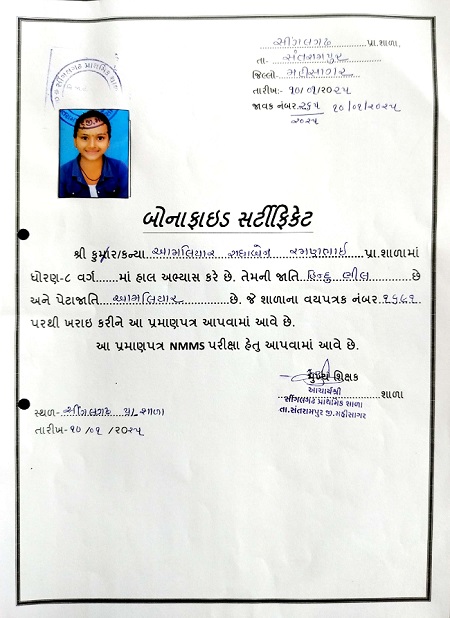 સીંગલગઢ પ્રા.શાળા,
તા- સંતરામપુર
જિલ્લો- મહીસાગર
તારીખ:- ૧૦/૦૧/૨૦૨૫
જાવક નંબર. ૨૬૫ ૧૦/૦૧/૨૦૨૫
૨૦૨૫
બોનાફાઇડ સર્ટીફિકેટ
શ્રી કુમાર/કન્યા આમલિયાર રાધાબેન રમણભાઇ પ્રા.શાળામાં
ધોરણ-૮ વર્ગ.......માં હાલ અભ્યાસ કરે છે. તેમની જાતિ હિન્દુ ભીલ છે
અને પેટાજાતિ આમલિયાર છે. જે શાળાના વયપત્રક નંબર ૧૫૬૧
પરથી ખરાઇ કરીને આ પ્રમાણપત્ર આપવામાં આવે છે.
આ પ્રમાણપત્ર NMMS પરીક્ષા હેતુ આપવામાં આવે છે.
મુખ્ય શિક્ષક
આચાર્યશ્રી
શાળા
સીંગલગઢ પ્રાથમિક શાળા
તા.સંતરામપુર જી.મહીસાગર
સ્થળ- સીંગલગઢ પ્રા. શાળા
તારીખ- ૧૦ /૦૧ /૨૦૨૫